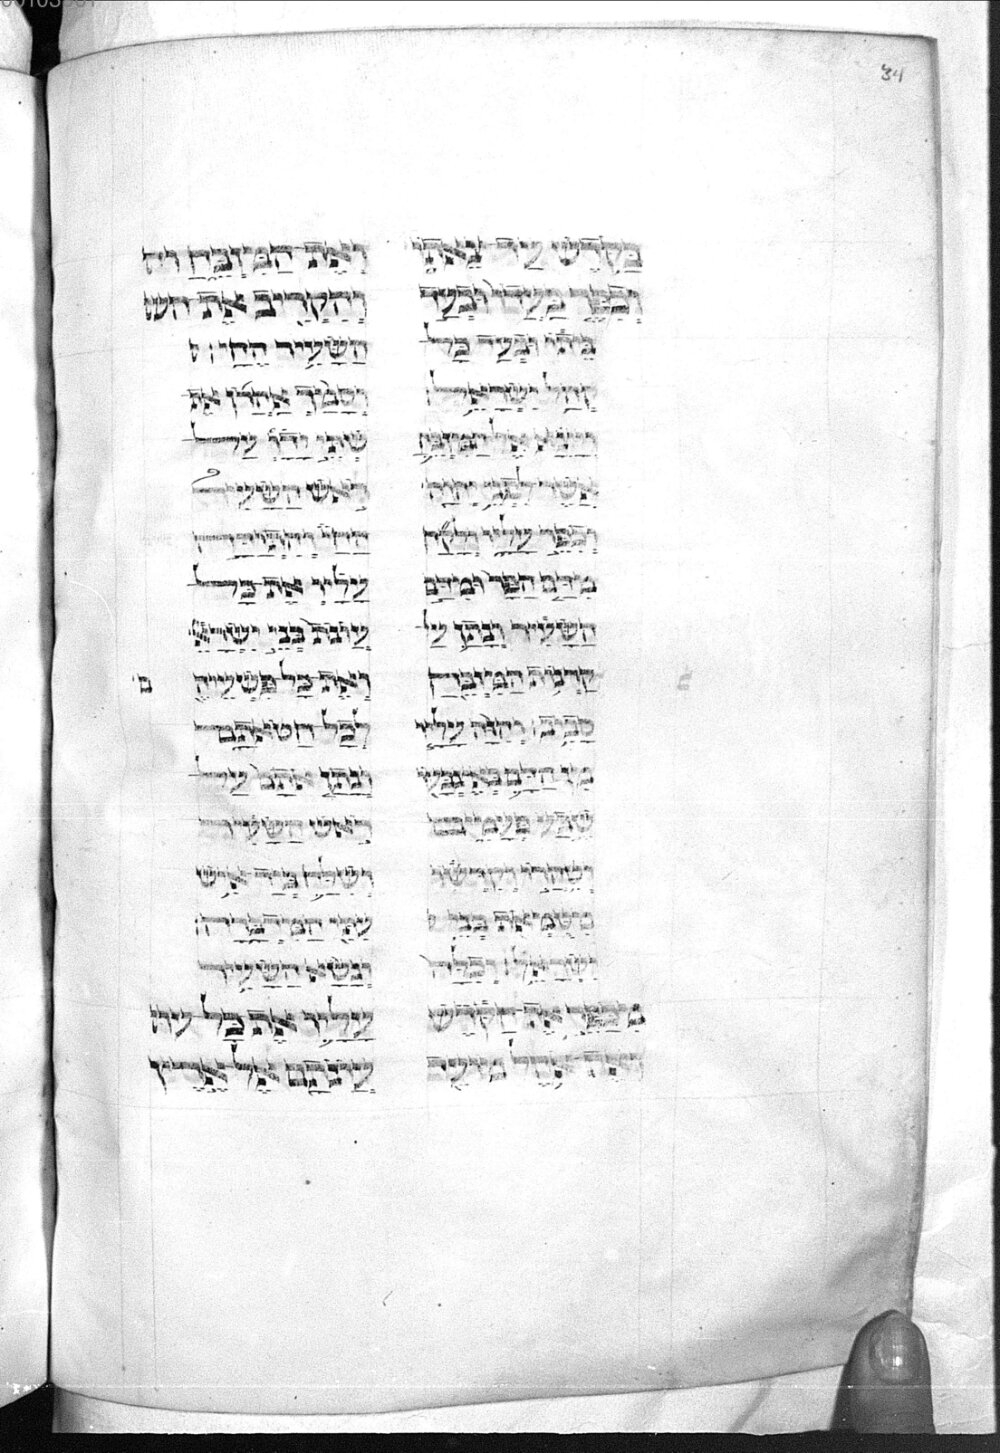 34
בַּקֹּדֶשׁ עַד צֵאתוֹ
וְכִפֶּר בַּעֲדוֹ וּבְעַד
בֵּיתוֹ וּבְעַד כָּל
קְהַל יִשְׂרָאֵל׃
וְיָצָא אֶל הַמִּזְבֵּחַ
אֲשֶׁר לִפְנֵי יְהוָה
וְכִפֶּר עָלָיו וְלָקַח
מִדַּם הַפָּר וּמִדַּם
הַשָּׂעִיר וְנָתַן עַל
קַרְנוֹת הַמִּזְבֵּחַ
סָבִיב׃ וְהִזָּה עָלָיו
מִן הַדָּם בְּאֶצְבָּעוֹ
שֶׁבַע פְּעָמִים
וְטִהֲרוֹ וְקִדְּשׁוֹ
מִטֻּמְאֹת בְּנֵי
יִשְׂרָאֵל׃ וְכִלָּה
מִכַּפֵּר אֶת הַקֹּדֶשׁ
וְאֶת אֹהֶל מוֹעֵד
וְאֶת הַמִּזְבֵּחַ וה
וְהִקְרִיב אֶת הש
הַשָּׂעִיר הֶחָי׃
וְסָמַךְ אַהֲרֹן אֶת
שְׁתֵּי יָדָו עַל
רֹאשׁ הַשָּׂעִיר
הַחַי וְהִתְוַדָּה
עָלָיו אֶת כָּל
עֲוֺנֹת בְּנֵי יִשְׂרָאֵל
וְאֶת כָּל פִּשְׁעֵיהֶם
לְכָל חַטֹּאתָם
וְנָתַן אֹתָם עַל
רֹאשׁ הַשָּׂעִיר
וְשִׁלַּח בְּיַד אִישׁ
עִתִּי הַמִּדְבָּרָה׃
וְנָשָׂא הַשָּׂעִיר
עָלָיו אֶת כָּל עונ
עֲוֺנֹתָם אֶל אֶרֶץ